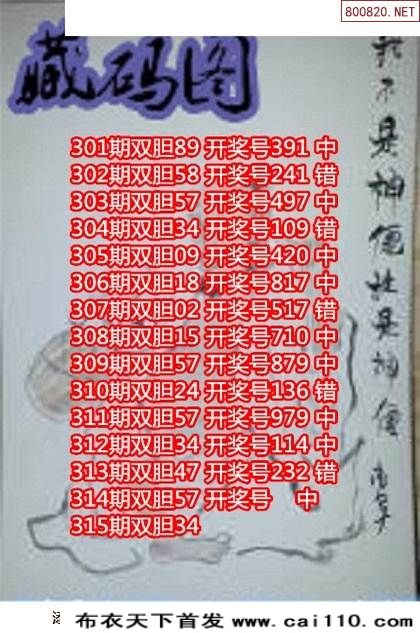 800820.NET
藏码图
301期双胆89 开奖号391 中
302期双胆58 开奖号241 错
303期双胆57 开奖号497 中
304期双胆34 开奖号109 错
305期双胆09 开奖号420 中
306期双胆18 开奖号817 中
307期双胆02 开奖号517 错
308期双胆15 开奖号710 中
309期双胆57 开奖号879 中
310期双胆24 开奖号136 错
311期双胆57 开奖号979 中
312期双胆34 开奖号114 中
313期双胆47 开奖号232 错
314期双胆57 开奖号 中
315期双胆34
我不是神便
是神便
布衣天下首发 www.cai110.com